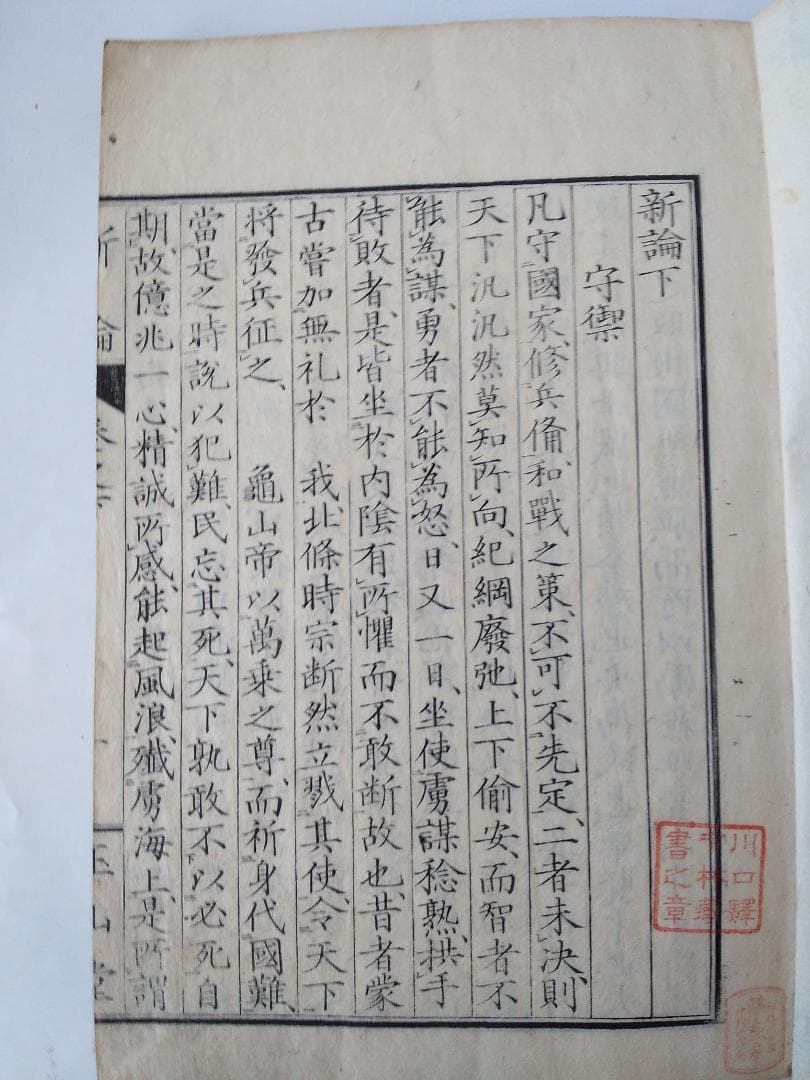 新論下
守禦
凡守國家、修兵俻、和戰之策、不可不先定、二者未決、則
天下汎汎然莫知所向、紀綱廢弛、上下偷安、而智者不
能為謀、勇者不能為怒、日又一日、坐使虜謀稔熟、拱手
待敗者、是皆坐於内陰有所懼而不敢断故也、昔者蒙
古嘗加無礼於　我、北條時宗断然立戮其使、令天下
將發兵征之、　龜山帝以萬乗之尊、而祈身代國難、
當是之時、説以犯難、民忘其死、天下孰敢不以必死自
期、故億兆一心、精誠所感、能起風浪、殲虜海上、是所謂
新論　卷之下　玉山堂
川口
書之章